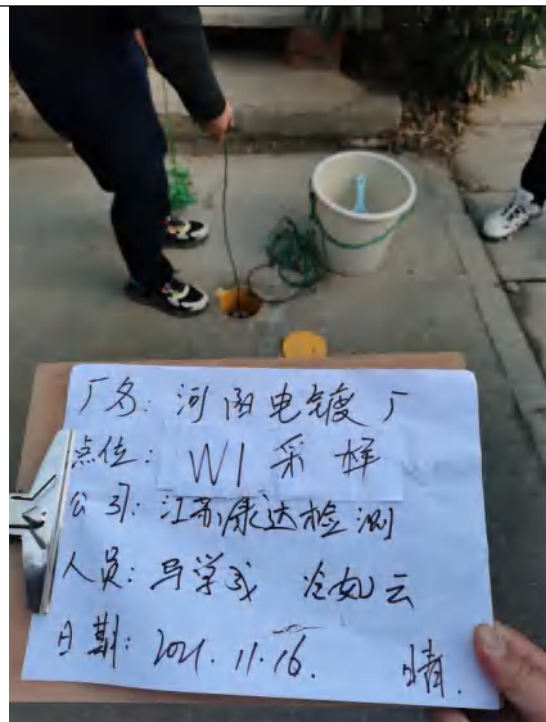 厂名: 河南电镀厂
点位: W1 采样
公司: 江苏康达检测
人员: 马学成 冷如云
日期: 2021.11.16. 晴.